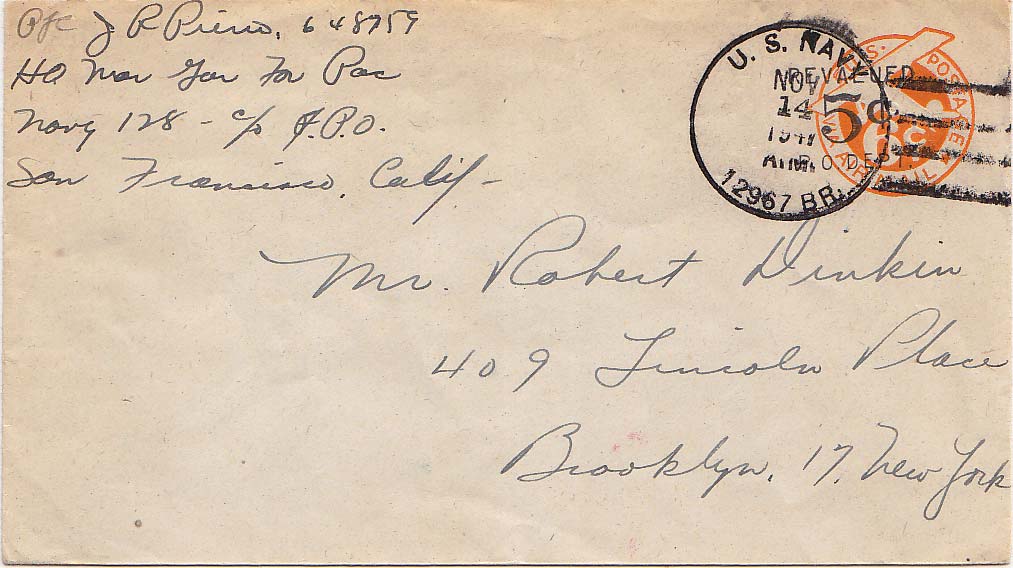 Pfc J R Pierro, 648759
HQ Mar Gar For Pac
Navy 128 - c/o F.P.O.
San Francisco, Calif -
U. S. NAVY
NOV
14
1947
A.M.
12967 BR.
REVALUED
5¢
P.O. DEPT.
U.S. POSTAGE
6¢
VIA AIR MAIL
Mr. Robert Dinkin
409 Lincoln Place
Brooklyn, 17, New York